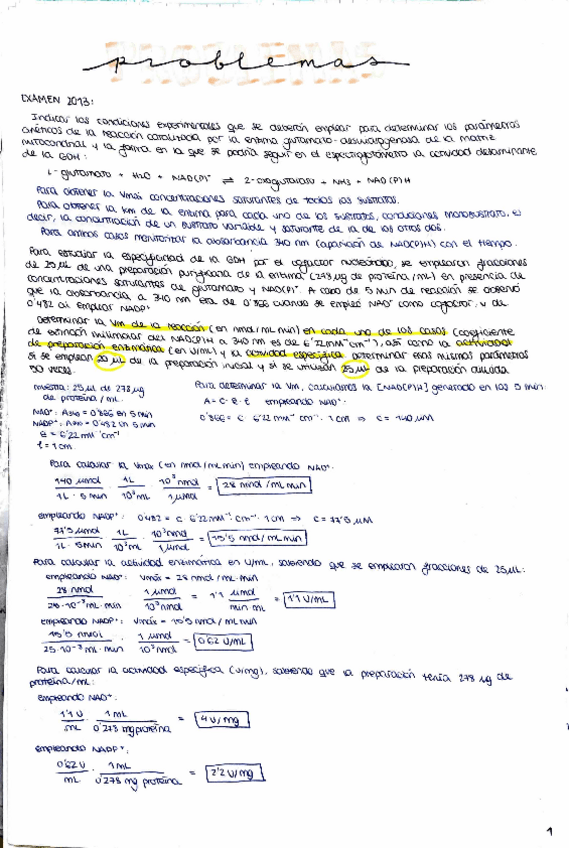 problemas
EXAMEN 2013:
Indicar las condiciones experimentales que se deberán emplear para determinar los parámetros
cinéticos de la reacción catalizada por la enzima glutamato-deshidrogenasa de la matriz
mitocondrial y la forma en la que se podría seguir en el espectrofotómetro la actividad determinante
de la GDH:
L-glutamato + H₂O + NAD(P)⁺ ⇌ 2-oxoglutarato + NH₃ + NAD(P)H
Para obtener la Vmáx concentraciones saturantes de todos los sustratos.
Para obtener la Km de la enzima para cada uno de los sustratos, condiciones monosustrato, es
decir, la concentración de un sustrato variable y saturante de la de los otros dos.
Para ambos casos monitorizar la absorbancia 340 nm (aparición de NAD(P)H) con el tiempo.
Para estudiar la especificidad de la GDH por el cofactor nucleótido, se emplearon fracciones
de 25 μL de una preparación purificada de la enzima (278 μg de proteína/mL) en presencia de
concentraciones saturantes de glutamato y NAD(P)⁺. A cabo de 5 min de reacción se observó
que la absorbancia a 340 nm era de 0'866 cuando se empleó NAD⁺ como cofactor, y de
0'482 al emplear NADP⁺
Determinar la Vm de la reacción (en nmol/mL min) en cada uno de los casos (coeficiente
de extinción milimolar del NAD(P)H a 340 nm es de 6'22 mM⁻¹cm⁻¹), así como la actividad
de preparación enzimática (en U/mL) y la actividad específica. Determinar esos mismos parámetros
si se emplean 50 μL de la preparación inicial y si se utilizan 25 μL de la preparación diluida
50 veces.
muestra: 25 μL de 278 μg
de proteína/mL.
NAD⁺: A₃₄₀ = 0'866 en 5 min
NADP⁺: A₃₄₀ = 0'482 en 5 min
ε = 6'22 mM⁻¹cm⁻¹
ℓ = 1 cm.
Para determinar la Vm, calculamos la [NAD(P)H] generado en los 5 min.
A = C · ε · ℓ empleando NAD⁺:
0'866 = C · 6'22 mM⁻¹ cm⁻¹ · 1 cm ⇒ C = 140 μM
Para calcular la Vmáx (en nmol/mL min) empleando NAD⁺
140 μmol / 1L · 5 min · 1L / 10³ mL · 10³ nmol / 1 μmol = 28 nmol/mL min
empleando NADP⁺: 0'482 = C · 6'22 mM⁻¹ · cm⁻¹ · 1 cm ⇒ C = 77'5 μM
77'5 μmol / 1L · 5 min · 1L / 10³ mL · 10³ nmol / 1 μmol = 15'5 nmol/mL min
Para calcular la actividad enzimática en U/mL, sabiendo que se emplearon fracciones de 25 μL:
empleando NAD⁺: Vmáx = 28 nmol/mL·min
28 nmol / 25·10⁻³ mL·min · 1 μmol / 10³ nmol = 1'1 μmol / min·mL = 1'1 U/mL
empleando NADP⁺: Vmáx = 15'5 nmol/mL min
15'5 nmol / 25·10⁻³ mL·min · 1 μmol / 10³ nmol = 0'62 U/mL
Para calcular la actividad específica (U/mg), sabiendo que la preparación tenía 278 μg de
proteína/mL:
empleando NAD⁺:
1'1 U / mL · 1 mL / 0'278 mg proteína = 4 U/mg
empleando NADP⁺:
0'62 U / mL · 1 mL / 0'278 mg proteína = 2'2 U/mg
1